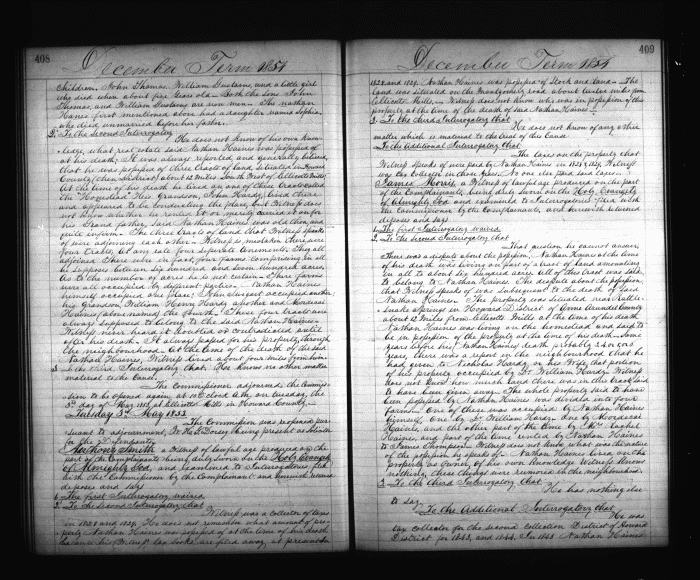 408
December Term 1857
Children. John Thomas, William Gustavus, and a little girl
who died when about five years old. Both the sons John
Thomas, and William Gustavus are now men. The Nathan
Haines first mentioned above had a daughter named Sophia,
who died unmarried before her father.
2. To the Second Interrogatory
He does not know of his own know-
ledge, what real estate said Nathan Haines was possessed of
at his death; It was always reported and generally believed,
that he was possessed of three tracts of land situated in Howard
County (then District) about 12 Miles South West of Ellicotts Mills;
At the time of his death he lived on one of these tracts called
the Homestead. His Grandson, John Hardy, lived there
and appeared to be conducting the place, but Witness does
not know whether he rented it or merely carried it on for
his Grand father, Said Nathan Haines was old then, and
quite infirm. The three tracts of land that Witness speaks
of were adjoining each other. Witness is mistaken there were
four tracts, at any rate four separate tenements. They all
adjoined. There were in fact, four farms comprising in all
he supposes between six hundred and seven hundred acres.
As to the number of acres he is not certain. These farms
were all occupied by different parties. Nathan Haines
himself occupied one place; John Sargent occupied another;
his Grandson William Henry Hardy another and Mordecai
Haines (above named) the fourth. These four tracts are
always supposed to belong to the said Nathan Haines.
Witness never heard it doubted or contradicted until
after his death. It always passed for his property through
the neighbourhood. At the time of the death of the said
Nathan Haines, Witness lived about four miles from him.
3. To the third Interrogatory. He knows no other matter
material to the Cause.
The Commissioner adjourned the Commis-
sion to be opened again at 10 o'clock A.M. on Tuesday, the
3rd day of May 1853 at Ellicotts Mills in Howard County.
Tuesday 3rd May 1853
The Commission was reopened pur-
suant to adjournment, Dr. H. Dorsey being present as Solicitor
for the Defendants.
Anthony Smith a Witness of lawful age produced on the
part of the Complainants being duly sworn on the Holy Evangely
of Almighty God, and examined to Interrogatories filed
with the Commissioner by the Complainant and
deposes and says
1. The first Interrogatory waived
2. To the Second Interrogatory that
Witness was a Collector of taxes
in 1828 and 1829. He does not remember what amount of pro-
perty Nathan Haines was possessed of at the time of his death
because his (Witness') tax books are filed away, at present in
409
December Term 1857
1828 and 1829. Nathan Haines was possessed of Stock and land. The
land was situated on the Montgomery road about twelve miles from
Ellicotts Mills. Witness does not know who was in possession of this
property at the time of the death of said Nathan Haines.
3. To the third Interrogatory that
He does not know of any other
matter which is material to the trial of this Cause.
To the additional Interrogatory that
The taxes on the property that
Witness speaks of were paid by Nathan Haines in 1828 & 1829. Witness
was tax collector in those years. No one else paid said taxes.
James Morris, a Witness of lawful age produced on the part
of the Complainants, being duly sworn on the Holy Evangely
of Almighty God and examined to Interrogatories filed with
the Commissioner by the Complainants, and herewith returned
deposes and says
1. The first Interrogatory waived
2. To the Second Interrogatory that
That question he cannot answer,
There was a dispute about the possession. Nathan Haines at the time
of his death was living on part of a tract of land amounting
in all to about six hundred acres. All of this tract was said
to belong to Nathan Haines. The dispute about the possession,
that Witness speaks of was subsequent to the death of said
Nathan Haines. The property was situated near Rattle-
snake Springs in Howard District of Anne Arundel County
about 12 Miles from Ellicotts Mills. At the time of his death
Nathan Haines was living on the homestead and said to
be in possession of the property at the time of his death. Some
years before his Nathan Haines death, probably 3, 4 or 5
years, there was a report in the neighbourhood that he
had given to Nicholas Hardy, or his Wife that portion
of his property occupied by Dr. William Hardy. Witness
does not know how much land there was in the tract, said
to have been given away. The whole property said to have
been possessed by Nathan Haines was divided into four
farms. One of them was occupied by Nathan Haines
himself. One by Dr. William Hardy, one by Mordecai
Haines, and the other part of the time by Mrs. Rachel
Haines, and part of the time rented by Nathan Haines
to James Thompson. Witness does not know what was the nature
of the possession he speaks of. Nathan Haines lived on the
property as owner; Of his own knowledge Witness knows
nothing, these things were rumored in the neighbourhood.
3. To the third Interrogatory that
He has nothing else
to say.
To the Additional Interrogatory that
He was
tax collector for the second collection District of Howard
District for 1843, and 1844. In 1843 Nathan Haines